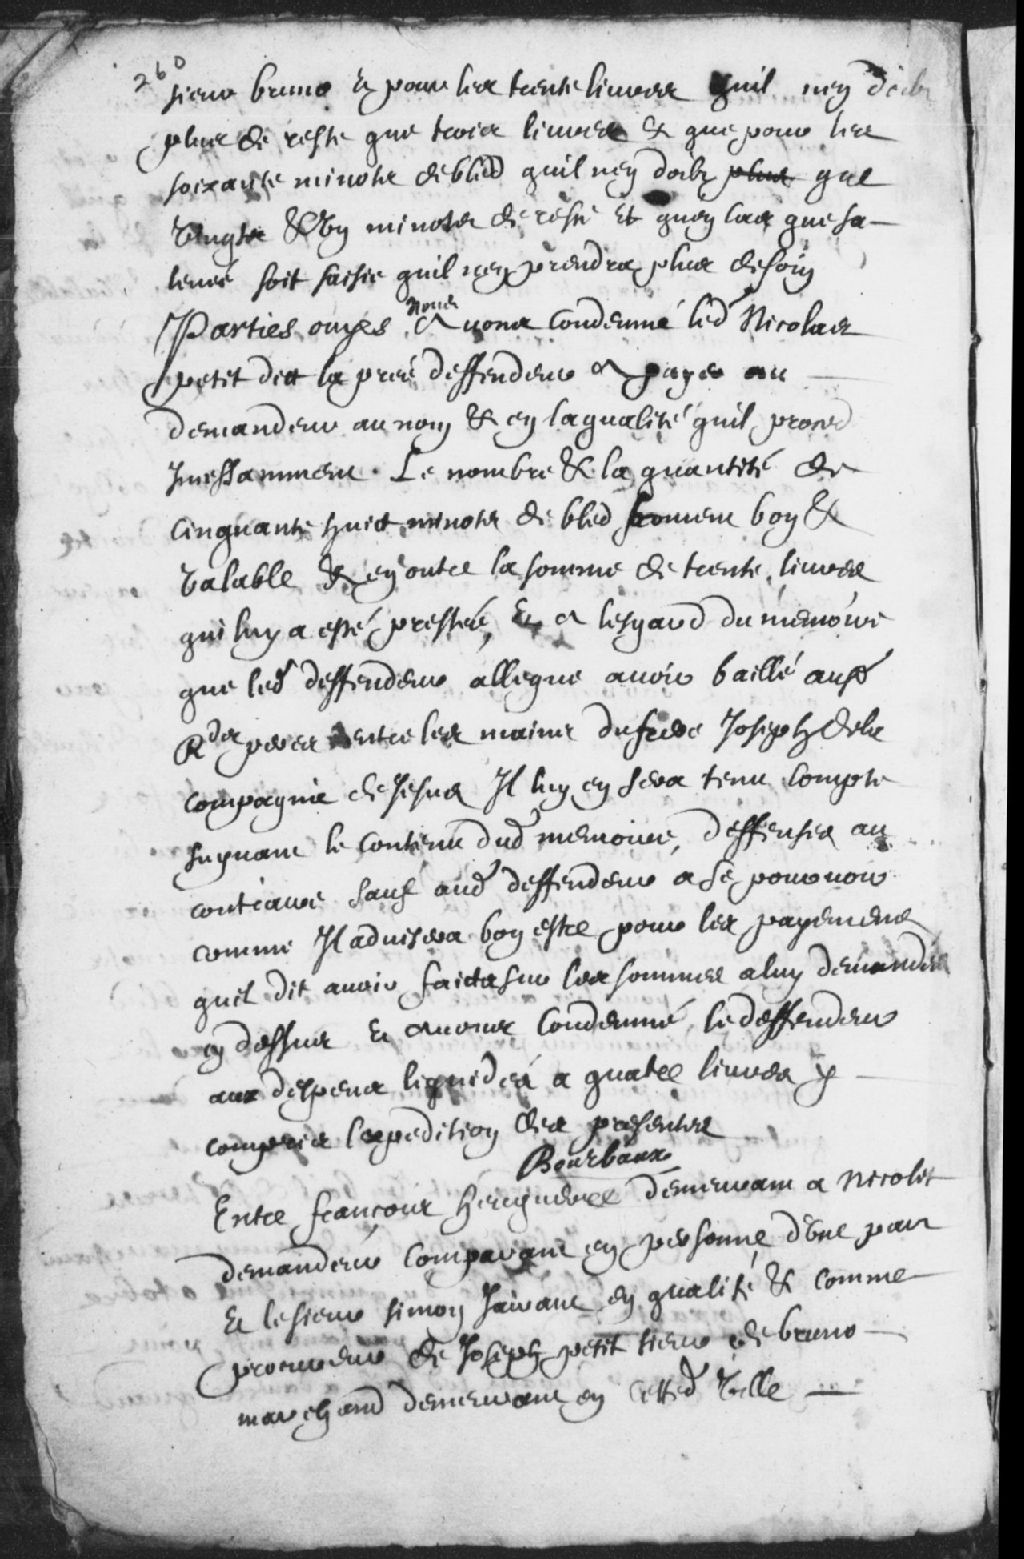 260
sieur bruno Et pour les trente livres quil ney doibt
plus de reste que trois livres & que pour les
soixante minots de bled quil ney doibt plus que
vingts & ung minots de reste Et quey cas que sa
levée soit saisie quil ney prendra plus de soiy
Parties ouyes Nous avons Condemné led Nicolas
petit dict la prée deffendeur a payer au
demandeur au nom & ey la qualité quil procede
Incessamment Le nombre & la quantité de
Cinquante huict minots de bled froment boy &
valable & ey outre la somme de trente livres
qui luy a esté prestée, Et a lesgard du memoire
que led deffendeur allegue avoir baillé ausd
Rds peres entre les mains du frere Joseph de la
compagnie de Jesus Il luy ey sera tenu Compte
suyvant le Contenu dud memoire, deffenses au
contraire sauf aud deffendeur a se pourvoir
comme Il advisera boy estre pour les payemens
quil dit avoir faicts sur les sommes a luy demandées
cy dessus Et avons Condemné le deffendeur
aux despens liquidés a quatre livres y
compris lexpedition des presentes
Bourbaux
Entre françois demeurant a Nicolet
demandeur Comparant ey personne dune part
Et le sieur simoy ey qualité & comme
procureur de Joseph petit sieur de bruno
marchand demeurant ey Cetted ville